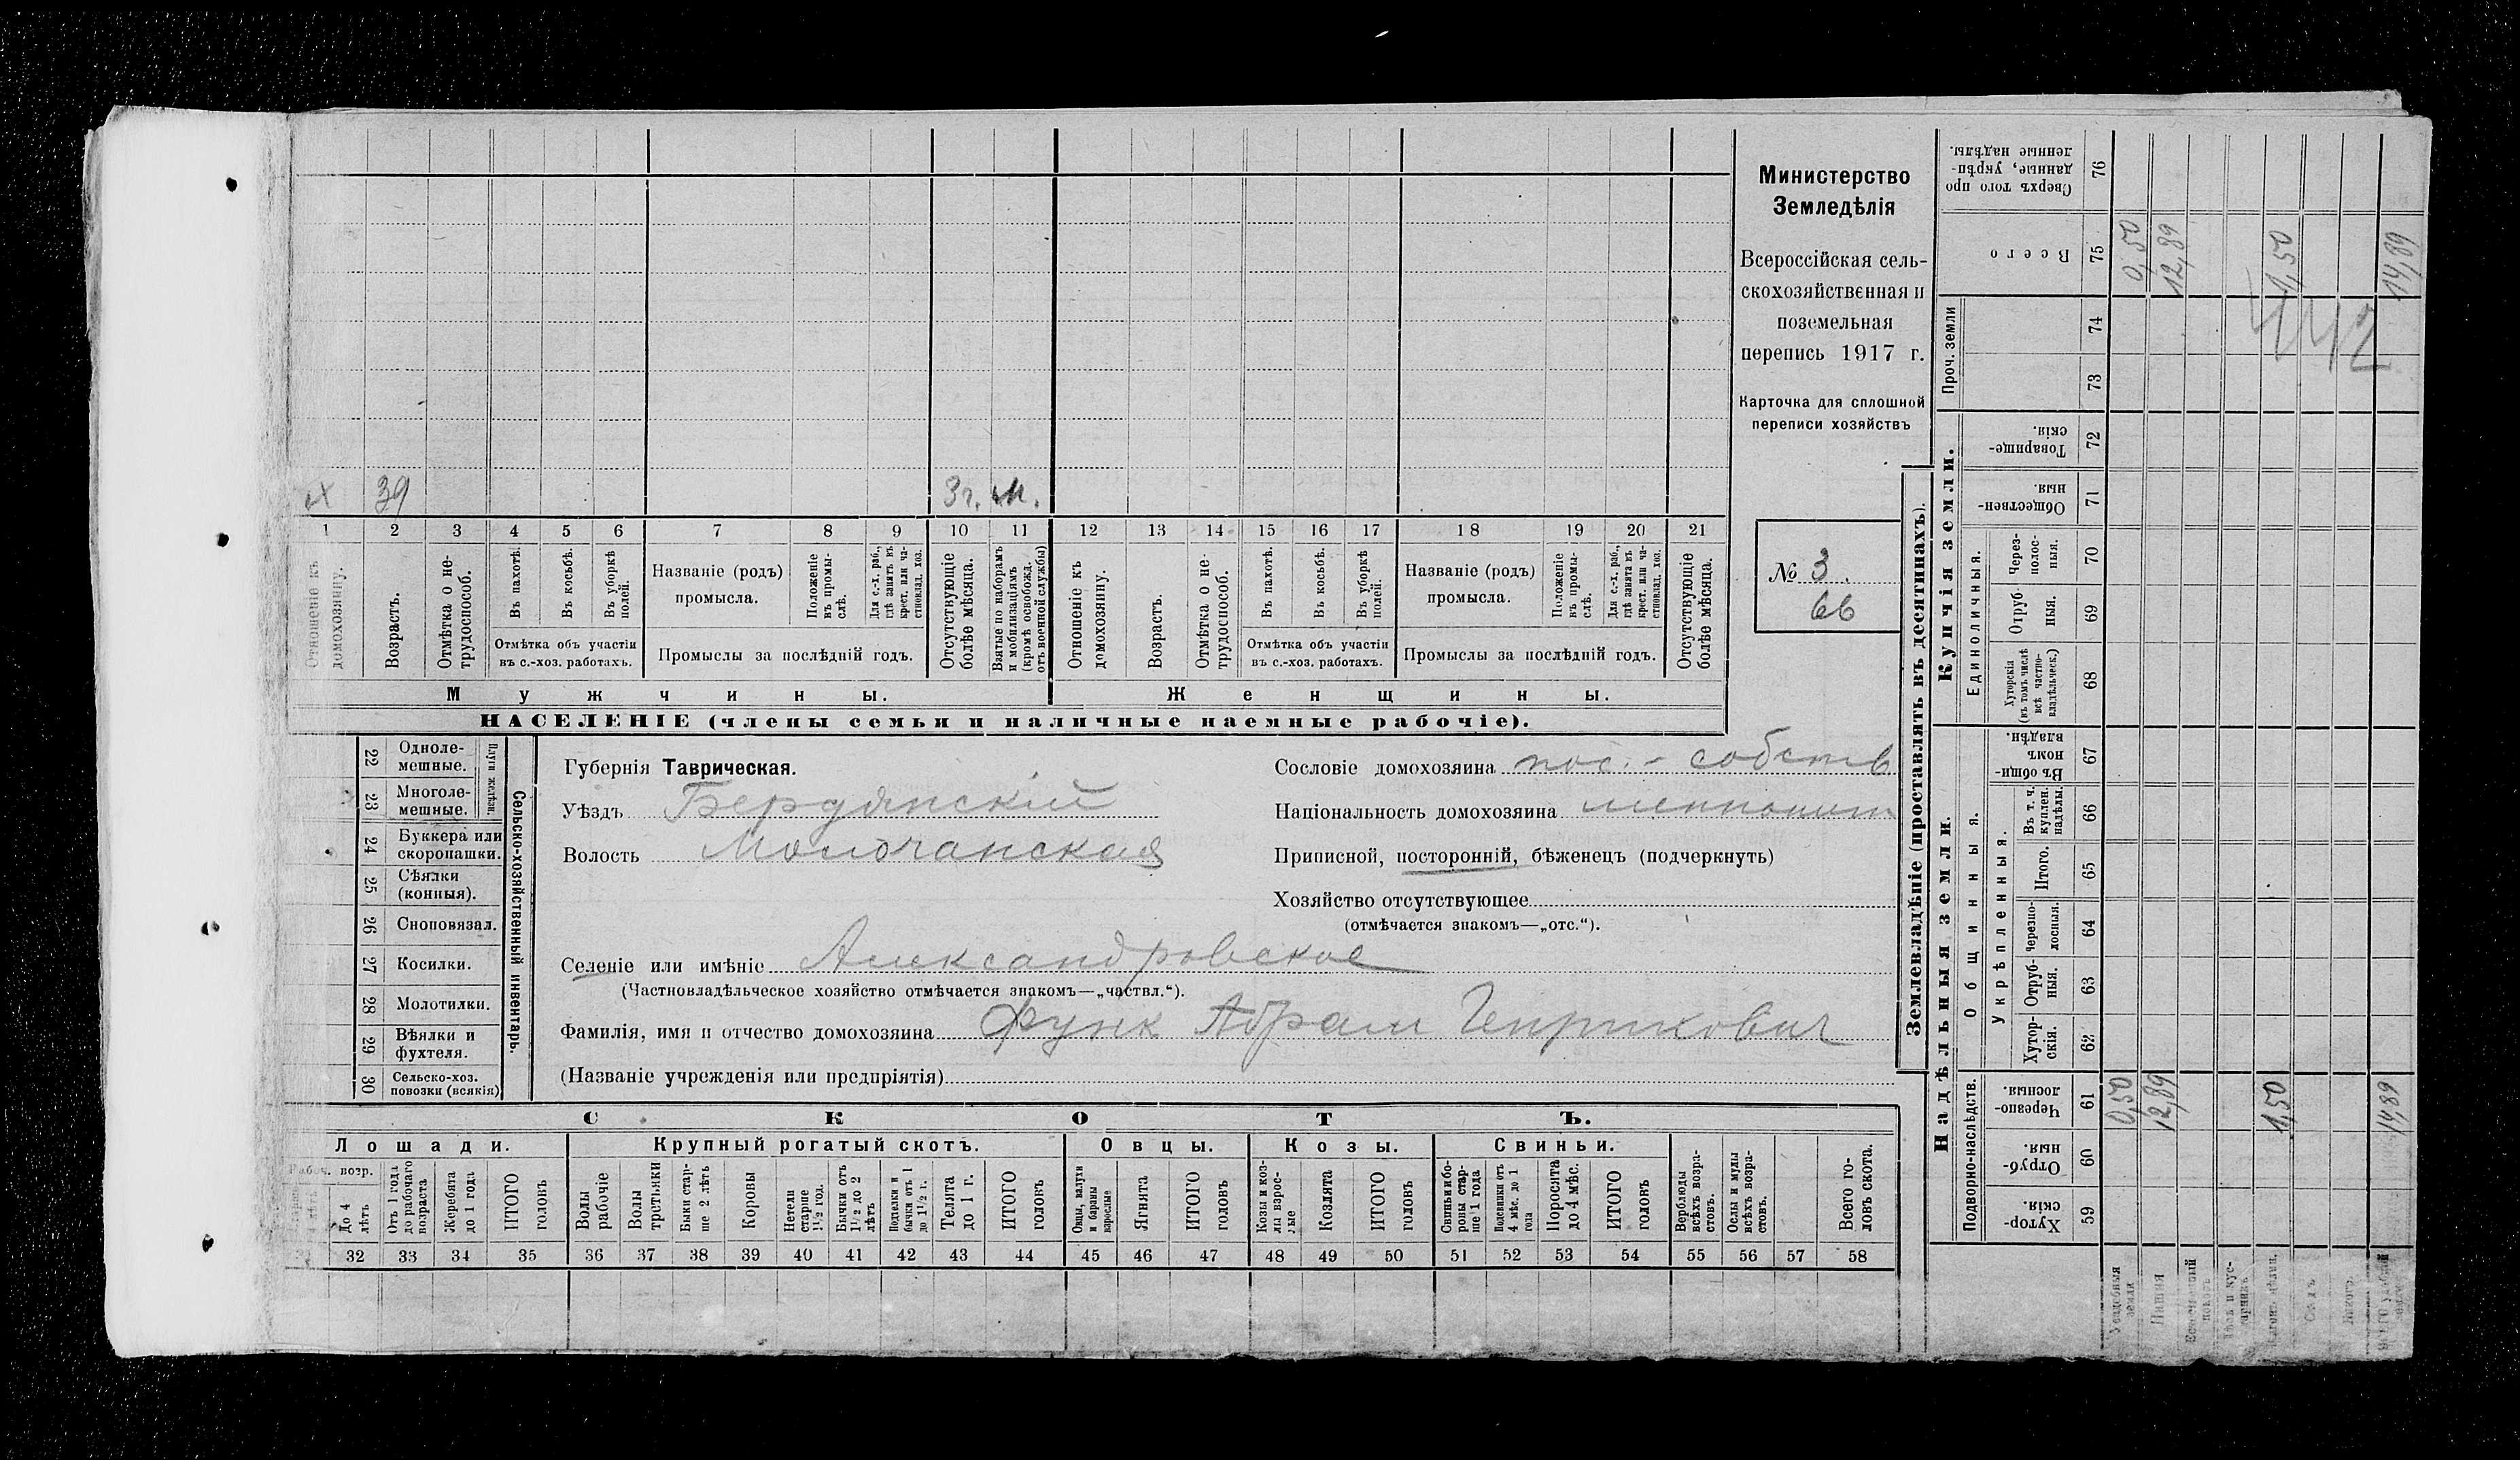 х 39 3 г. м.
1 2 3 4 5 6 7 8 9 10 11 12 13 14 15 16 17 18 19 20 21
Отношеніе къ домохозяину.
Возрастъ.
Отмѣтка о не-
трудоспособ.
Въ пахотѣ.
Въ косьбѣ.
Въ уборкѣ
полей.
Отмѣтка объ участіи
въ с.-хоз. работахъ.
Названіе (родъ)
промысла.
Положеніе
въ промы-
слѣ.
Для с.-х. раб.,
гдѣ занятъ въ
крест. или ча-
стновлад. хоз.
Промыслы за послѣдній годъ.
Отсутствующіе
болѣе мѣсяца.
Взятые по наборамъ
и мобилизаціямъ
(кромѣ освобожд.
отъ военной службы)
Отношеніе къ
домохозяину.
Возрастъ.
Отмѣтка о не-
трудоспособ.
Въ пахотѣ.
Въ косьбѣ.
Въ уборкѣ
полей.
Отмѣтка объ участіи
въ с.-хоз. работахъ.
Названіе (родъ)
промысла.
Положеніе
въ промы-
слѣ.
Для с.-х. раб.,
гдѣ занята въ
крест. или ча-
стновлад. хоз.
Промыслы за послѣдній годъ.
Отсутствующіе
болѣе мѣсяца.
Мужчины. Женщины.
НАСЕЛЕНІЕ (члены семьи и наличные наемные рабочіе).
Министерство
Земледѣлія
Всероссійская сель-
скохозяйственная и
поземельная
перепись 1917 г.
Карточка для сплошной
переписи хозяйствъ
№ 3.
66
22 Одноле-
мешные.
23 Многоле-
мешные.
Плуги желѣзн.
24 Буккера или
скоропашки.
25 Сѣялки
(конныя).
26 Сноповязал.
27 Косилки.
28 Молотилки.
29 Вѣялки и
фухтеля.
30 Сельско-хоз.
повозки (всякія)
Сельско-хозяйственный инвентарь.
Губернія Таврическая.
Уѣздъ Бердянскій
Волость Молочанская
Сословіе домохозяина пос. - собств
Національность домохозяина меннонит
Приписной, посторонній, бѣженецъ (подчеркнуть)
Хозяйство отсутствующее
(отмѣчается знакомъ—„отс.“).
Селеніе или имѣніе Александровское
(Частновладѣльческое хозяйство отмѣчается знакомъ—„частвл.“).
Фамилія, имя и отчество домохозяина Функ Абрам Генрикович
(Названіе учрежденія или предпріятія)
СКОТЪ.
Лошади. Крупный рогатый скотъ. Овцы. Козы. Свиньи.
Рабоч. возр.
До 4
лѣтъ
Отъ 1 года
до рабочаго
возраста
Жеребята
до 1 года
ИТОГО
головъ
Волы
рабочіе
Волы
третьяки
Быки стар-
ше 2 лѣтъ
Коровы
Нетели
старше
1½ год.
Бычки отъ
1½ до 2
лѣтъ
Подтелки и
бычки отъ 1
до 1½ г.
Телята
до 1 г.
ИТОГО
головъ
Овцы, валухи
и бараны
взрослые
Ягнята
ИТОГО
головъ
Козы и коз-
лы взрос-
лые
Козлята
ИТОГО
головъ
Свиньи и бо-
ровы стар-
ше 1 года
Подсвинки отъ
4 мѣс. до 1
года
Поросята
до 4 мѣс.
ИТОГО
головъ
Верблюды
всѣхъ возра-
стовъ.
Ослы и мулы
всѣхъ возра-
стовъ.
Всего го-
ловъ скота.
32 33 34 35 36 37 38 39 40 41 42 43 44 45 46 47 48 49 50 51 52 53 54 55 56 57 58
Землевладѣніе (проставлять въ десятинахъ).
Купчія земли.
Надѣльныя земли.
Сверхъ того про
данные, укрѣп-
ленные надѣлы. 76
Всего 75 0,50 12,89 1,50 14,89
Проч. земли
74
73
442
Товарище-
скія. 72
Обществен-
ныя. 71
Единоличныя.
Через-
полос-
ныя. 70
Отруб-
ныя. 69
Хуторскія
(въ томъ числѣ
всѣ частно-
владѣльческ.) 68
Общинныя.
Въ общи-
номъ
владѣн. 67
Укрѣпленныя.
Въ т. ч.
куплен.
надѣлы. 66
Итого. 65
Черезпо-
лосныя. 64
Отруб-
ныя. 63
Хутор-
скія. 62
Подворно-наслѣдств.
Черезпо-
лосныя. 61 0,50 12,89 1,50 14,89
Отруб-
ныя. 60
Хутор-
скія. 59
Усадебныя
земли
Пашня